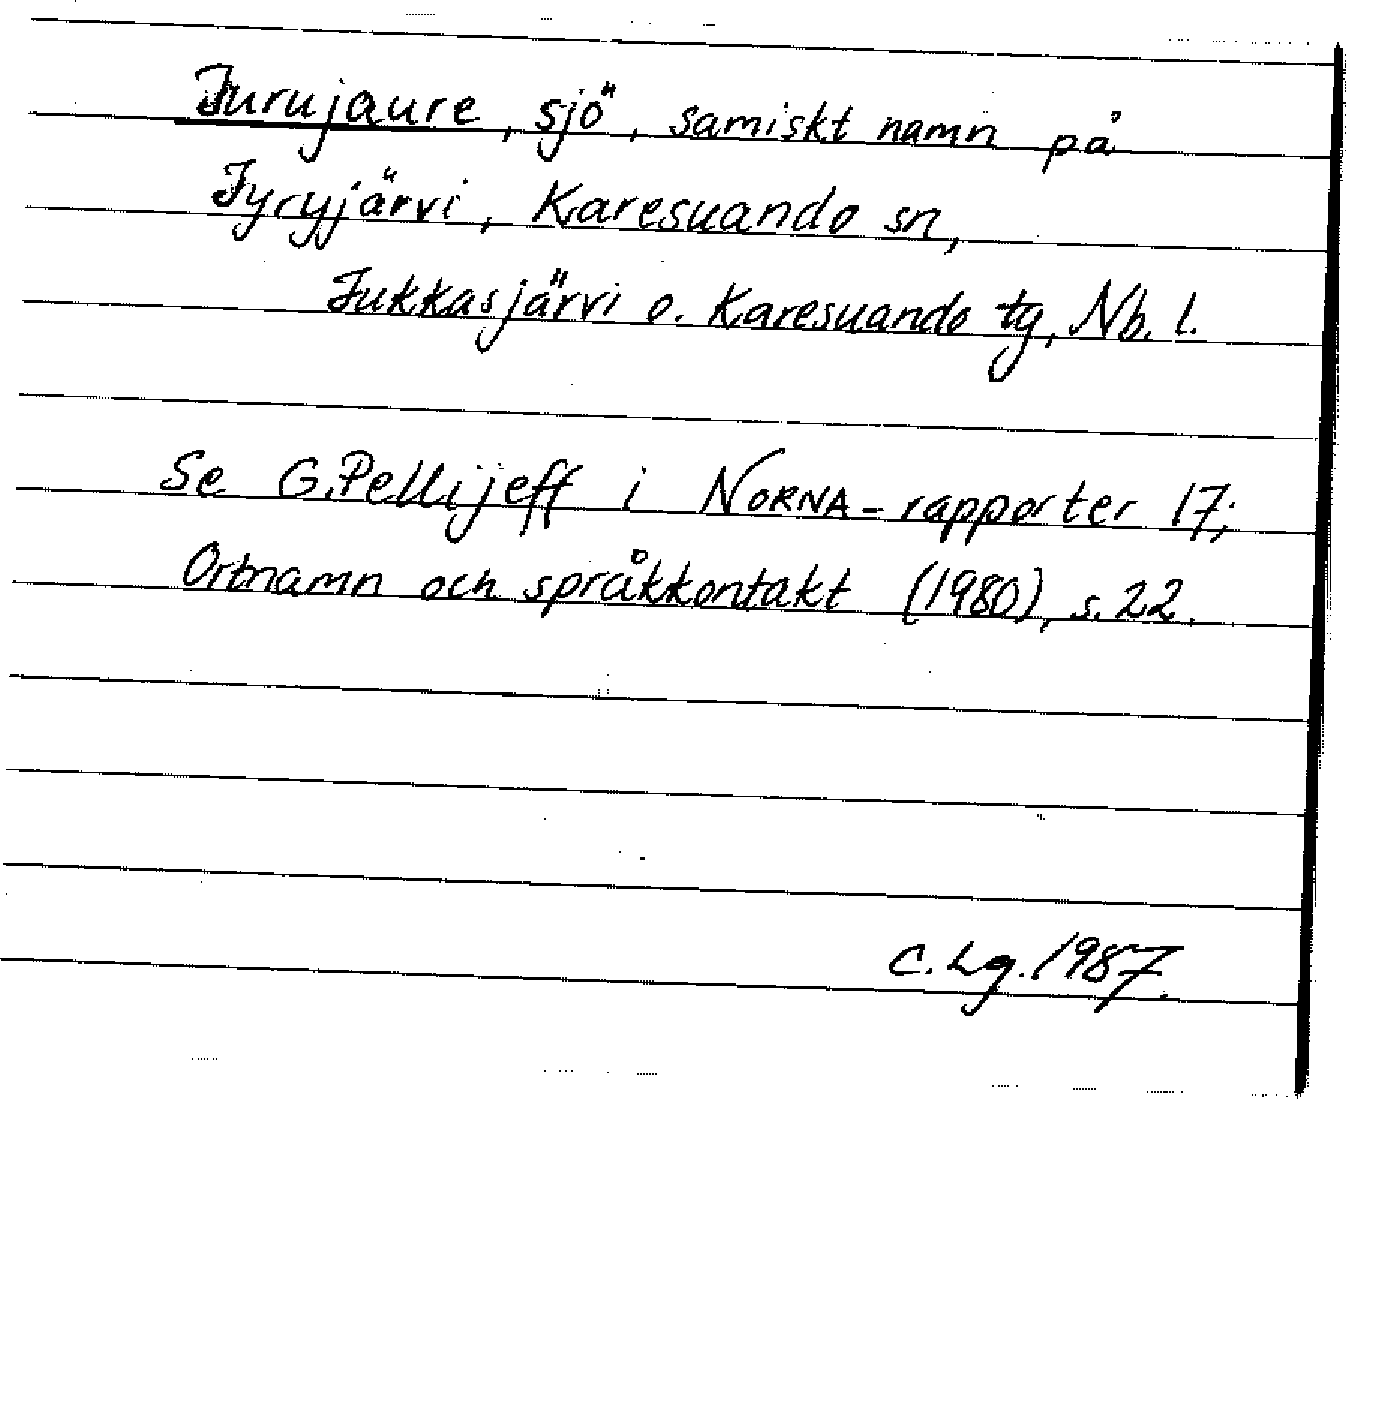 Jurujaure, sjö, samiskt namn på
Jyryjärvi, Karesuando sn,
Jukkasjärvi o. Karesuando tg, Nb. l.
Se G.Pellijeff i NORNA-rapporter 17;
Ortnamn och språkkontakt (1980), s. 22.
C. Lg. 1987.